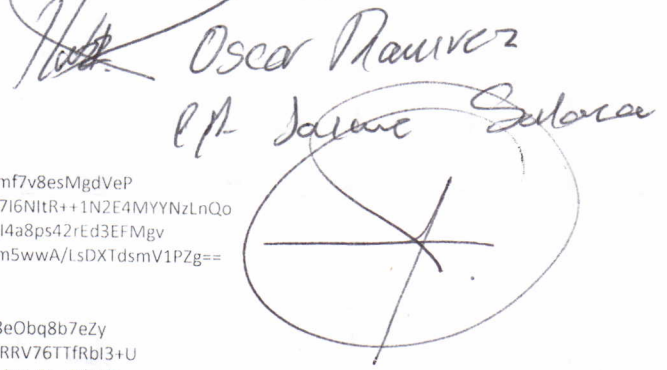 Oscar Ramirez
P/A Jaime
mf7v8esMgdVeP
7I6NItR++1N2E4MYYNzLnQo
I4a8ps42rEd3EFMgv
m5wwA/LsDXTdsmV1PZg==
8eObq8b7eZy
RRV76TTfRbI3+U